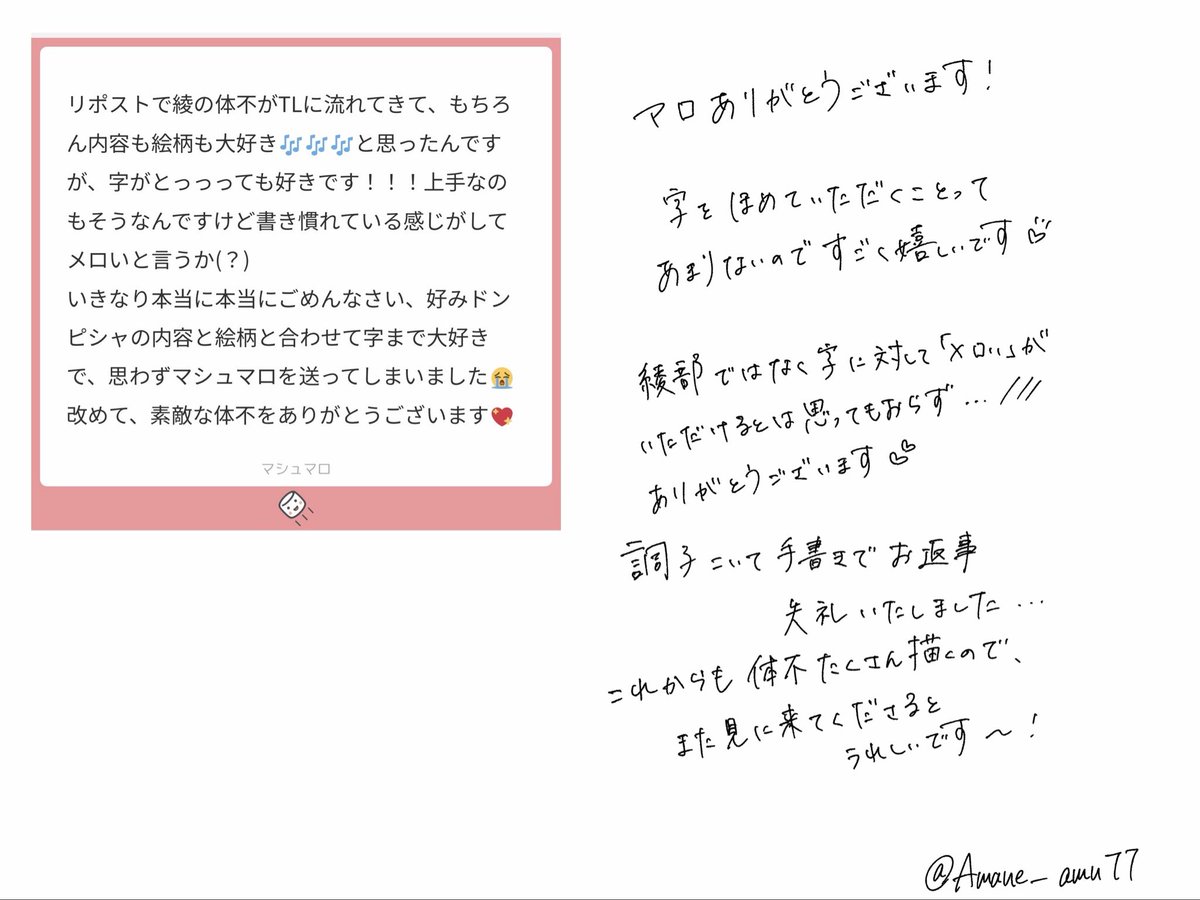 リポストで綾の体不がTLに流れてきて、もちろ
ん内容も絵柄も大好き🎶🎶🎶と思ったんです
が、字がとっっっても好きです！！！上手なの
もそうなんですけど書き慣れている感じがして
メロいと言うか(？)
いきなり本当に本当にごめんなさい、好みドン
ピシャの内容と絵柄と合わせて字まで大好き
で、思わずマシュマロを送ってしまいました😭
改めて、素敵な体不をありがとうございます💖
マシュマロ
マロありがとうございます！
字をほめていただくことって
あまりないのですごく嬉しいです♡
綾部ではなく字に対して「メロい」が
いただけるとは思ってもおらず…///
ありがとうございます♡
調子こいて手書きでお返事
失礼いたしました…
これからも体不たくさん描くので、
また見に来てくださると
うれしいです〜！
@Amane_amu77